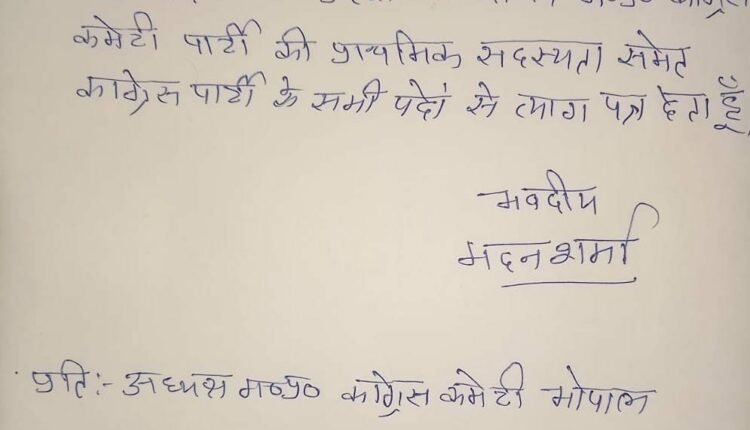 कमेटी पार्टी की प्राथमिक सदस्यता समेत
कांग्रेस पार्टी के सभी पदों से त्याग पत्र देता हूँ
भवदीय
मदन शर्मा
प्रति:- अध्यक्ष म०प्र० कांग्रेस कमेटी भोपाल